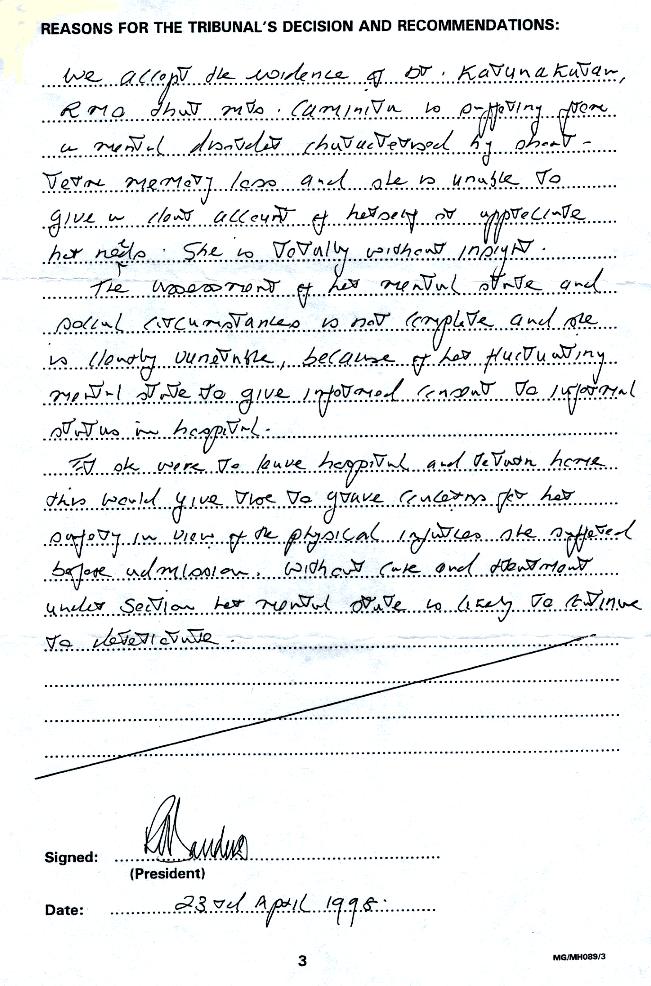 REASONS FOR THE TRIBUNAL'S DECISION AND RECOMMENDATIONS:
We accept the evidence of Dr. Karunakaran,
RMO that Mrs. is suffering from
a mental disorder characterised by short-
term memory loss and she is unable to
give a clear account of herself or appreciate
her needs. She is totally without insight.
The assessment of her mental state and
social circumstances is not complete and she
is clearly vunerable, because of her fluctuating
mental state to give informed consent to informal
status in hospital.
If she were to leave hospital and return home
this would give rise to grave concerns for her
safety in view of the physical injuries she suffered
before admission. Without care and treatment
under Section her mental state is likely to continue
to deteriorate.
Signed:
(President)
Date: 23rd April 1998.
3
MG/MH089/3